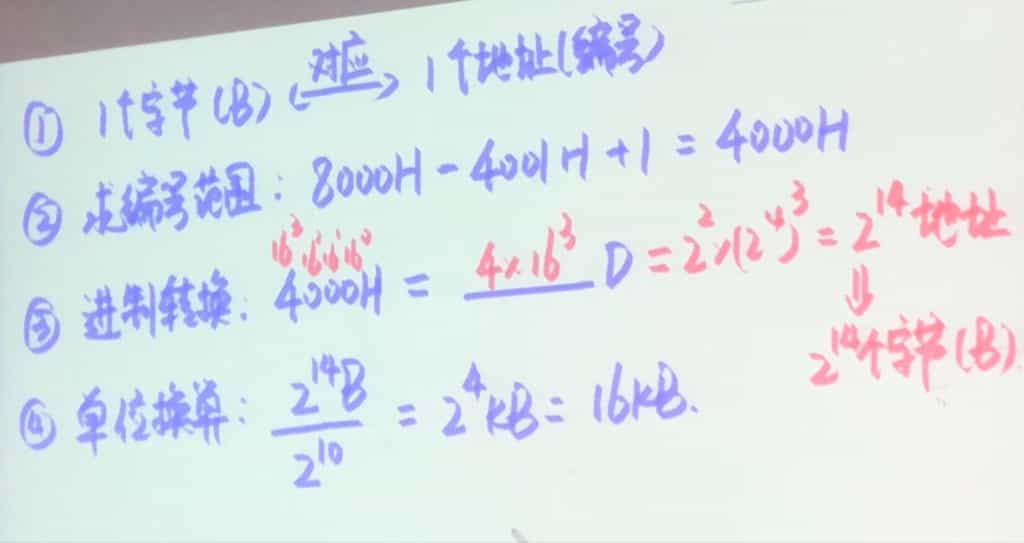 ① 1个字节(B) 对应 1个地址(编号)
② 求编号范围: 8000H - 4001H + 1 = 4000H
16³ 16² 16¹ 16⁰
③ 进制转换: 4000H = 4×16³ D = 2²×(2⁴)³ = 2¹⁴地址
⇓
2¹⁴个字节(B)
④ 单位换算: 2¹⁴B / 2¹⁰ = 2⁴KB = 16KB.